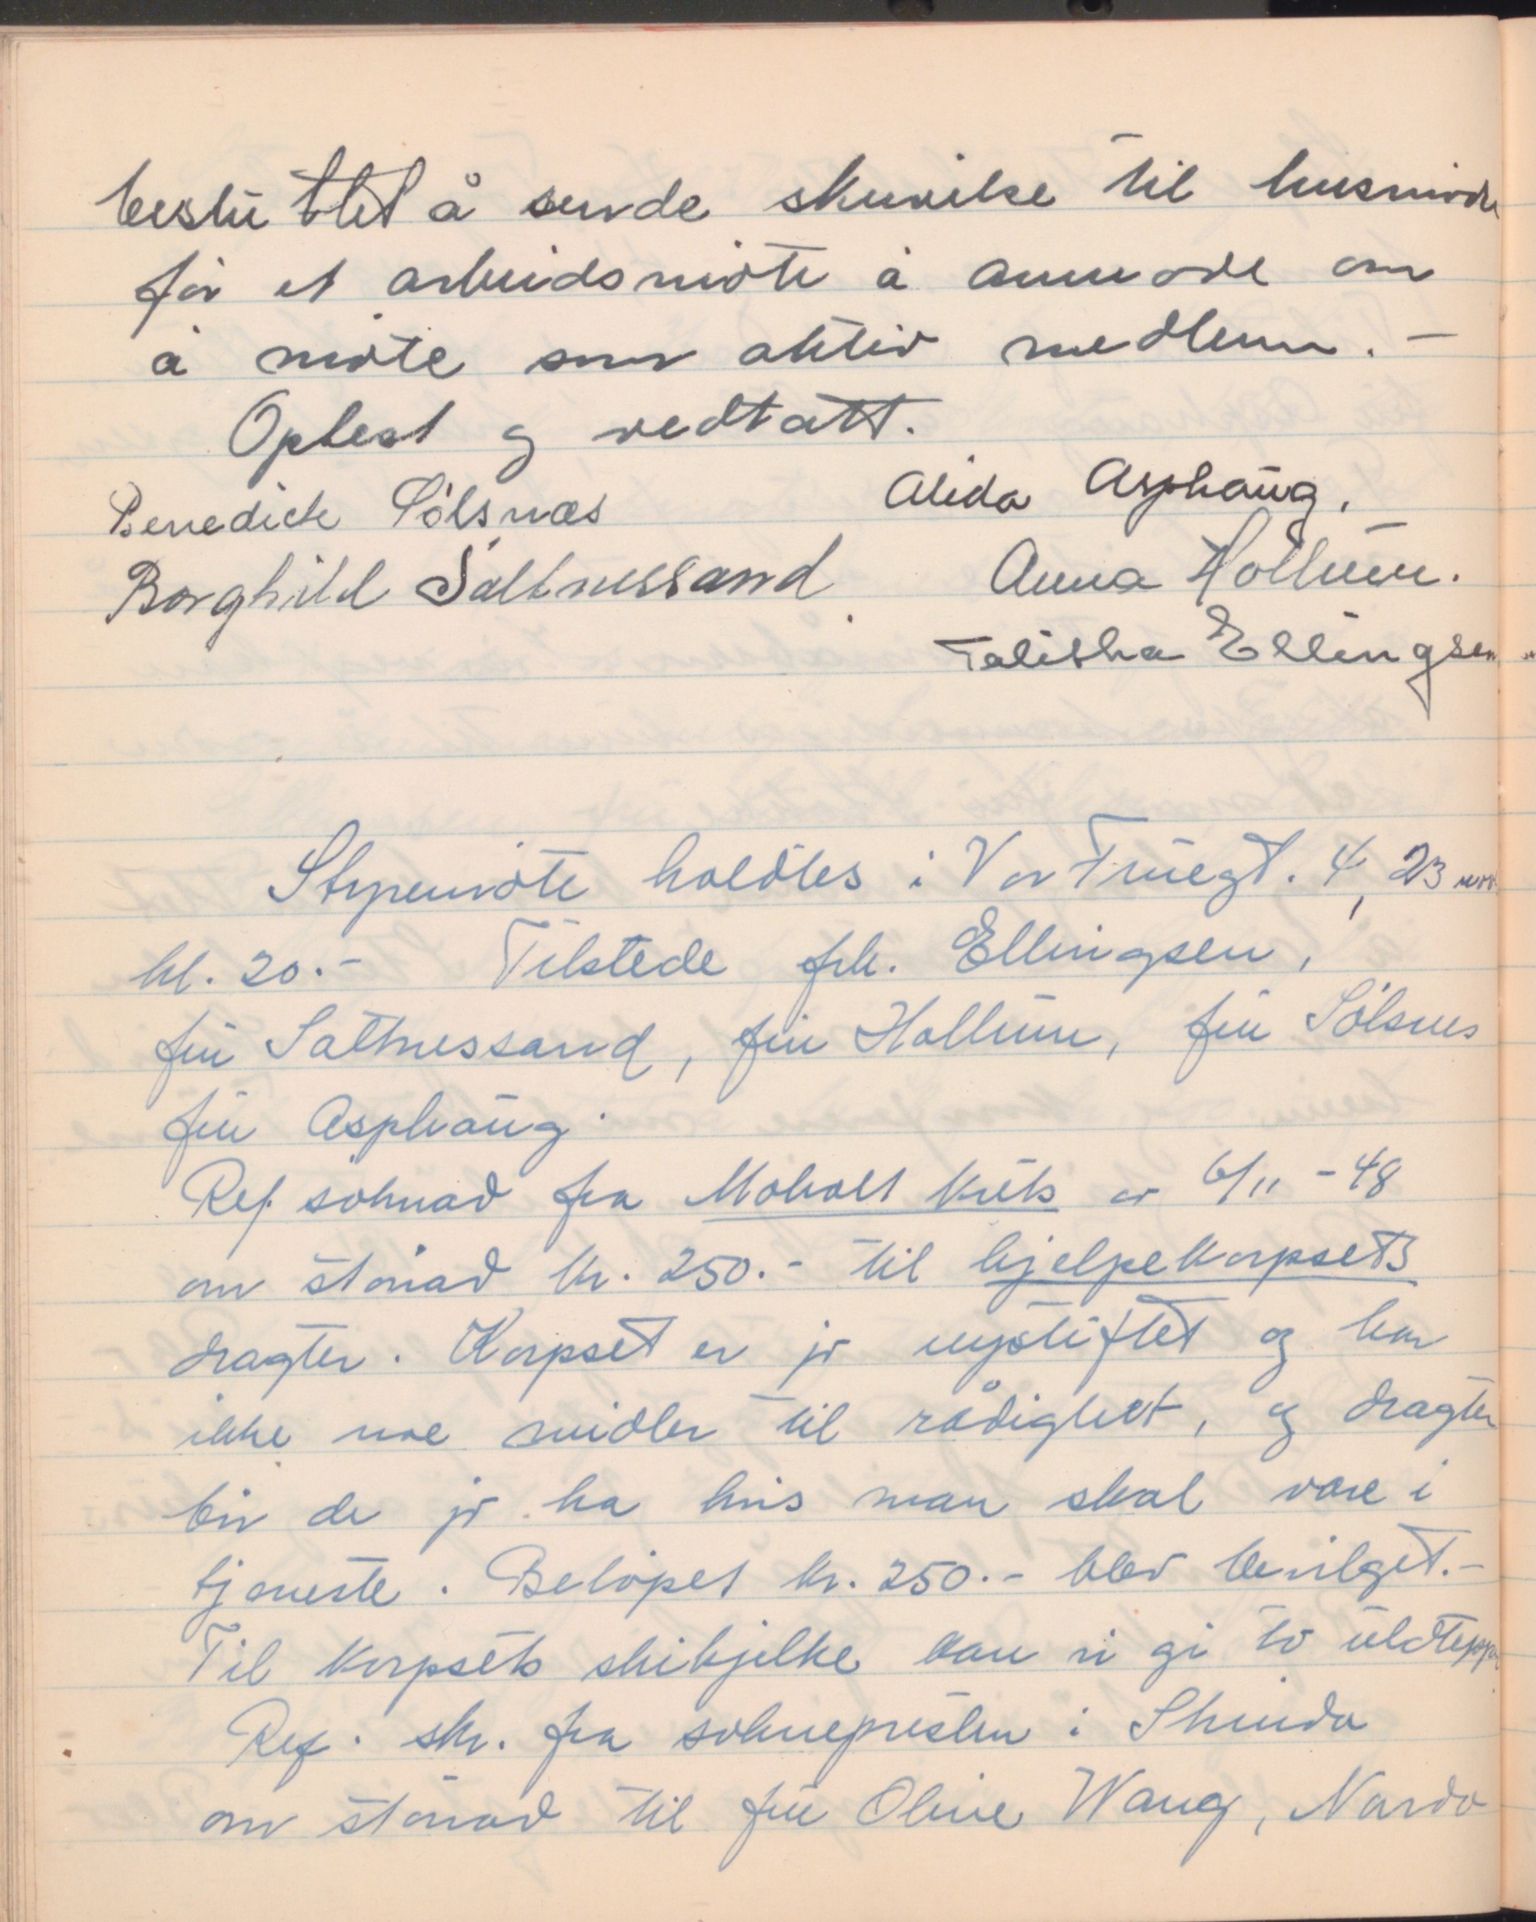 beslu ttet å sende skrivelse til husmødre
för et arbeidsmöte å anmode om
å möte som aktiv medlem. -
Oplest og vedtatt.
Benedicte Sölsnæs Alida Asphaug.
Borghild Saltnessand. Anna Hollum.
Talitha Ellingsen
Styremöte holdtes i Vor Fruegt. 4, 23 nov
kl. 20.- Tilstede frk. Ellingsen,
fru Saltnessand, fru Hollum, fru Sölsnes
fru Asphaug.
Ref. söknad fra Moholt krets av 6/11 -48
om stönad kr. 250.- til hjelpekorpsets
dragter. Korpset er jo nystiftet og har
ikke noe midler til rådighet, og dragter
bör de jo ha hvis man skal være i
tjeneste. Belöpet kr. 250.- blev bevilget.-
Til korpsets skikjelke kan vi gi to uldtepper
Ref. skr. fra soknepresten i Strinda
om stönad til fru Oline Wang, Nardo